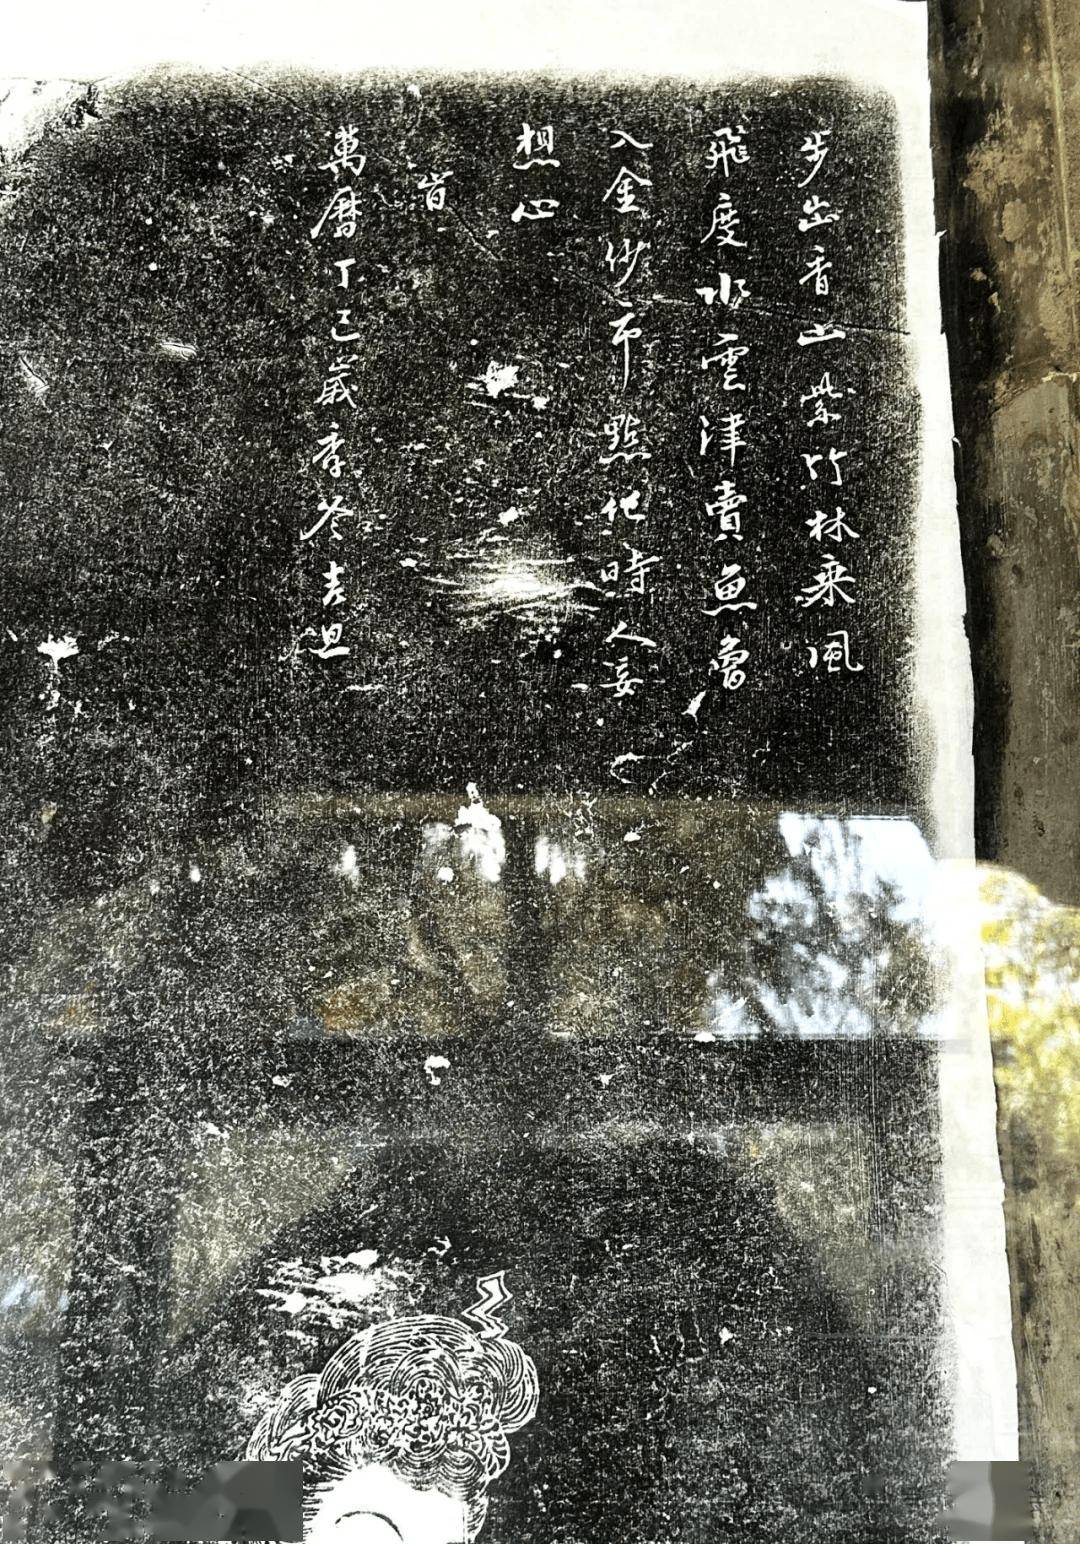 步出香山紫竹林乘風
飛度水雲津賣魚曾
入金沙市點化時人妄
想心
旹
萬曆丁巳歲季冬吉旦